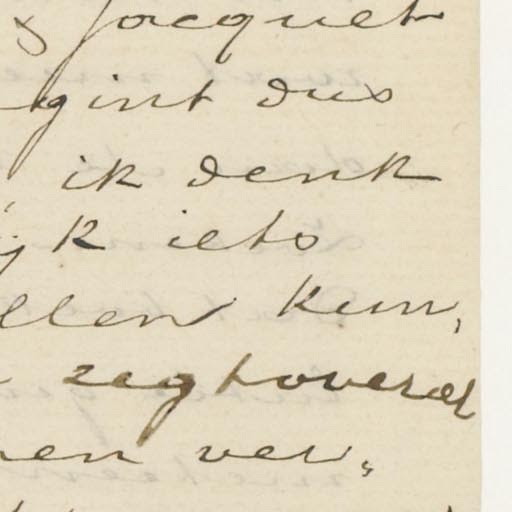 & Jacquet
gint dus
ik denk
ijk iets
llen kun,
zegt overal
en ver,